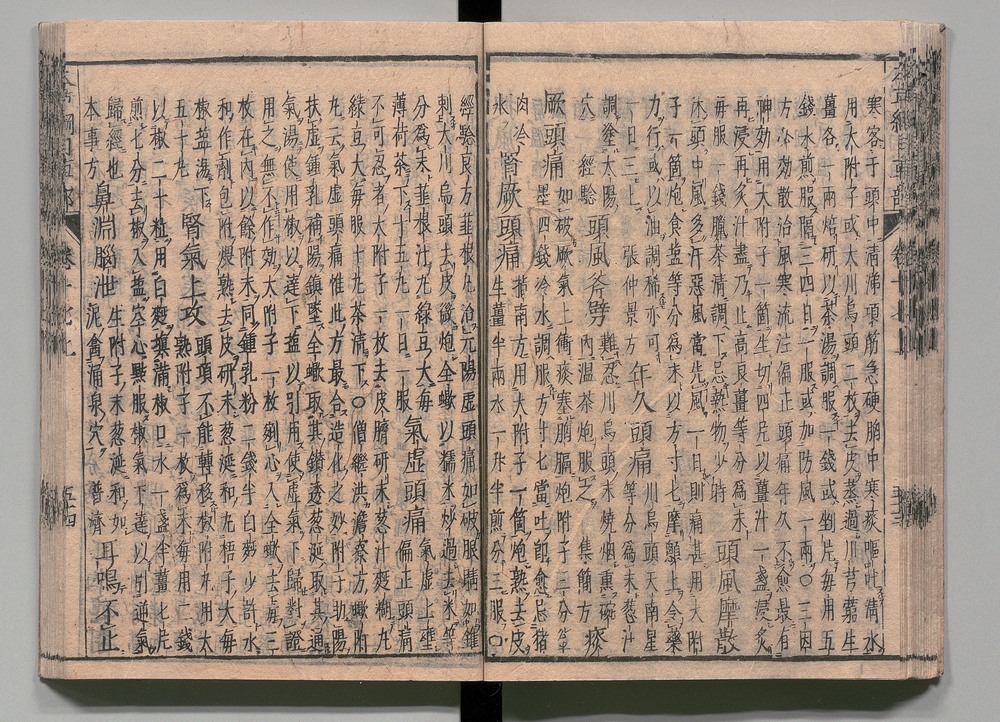 寒客于頭中清涕項筋急硬胸中寒痰嘔吐清水
用大附子或大川烏頭二枚去皮蒸過川芎藭生
薑各一兩焙研以茶湯調服一錢或剉片每用五
錢水煎服隔三四日一服或加防風一兩○三因
方冷効散治風寒流注偏正頭痛年久不愈最有
神効用大附子一箇生切四片以薑汁一盞浸炙
再浸再炙汁盡乃止高良薑等分為末
每服一錢臘茶清調下忌熱物少時 頭風摩散
沐頭中風多汗惡風當先風一日則痛甚用大附
子一箇炮食鹽等分為末以方寸匕摩顖上令藥
力行或以油調稀亦可一日三上 張仲景方 年久頭痛 川烏頭天南星等分為末葱汁
調塗太陽穴 經驗 頭風斧劈 難忍川烏頭末燒烟熏碗內温茶泡服之 集簡方 痰
厥頭痛 如破厥氣上衝痰塞胸膈炮附子三分釜墨四錢冷水調服方寸匕當吐即愈忌猪
肉冷水 腎厥頭痛 指南方用大附子一箇炮熟去皮生薑半兩水一升半煎分三服○
經驗良方韮根丸治元陽虛頭痛如破眼睛如錐
刺大川烏頭去皮微炮全蠍以糯米炒過去米等
分為末韮根汁丸綠豆大每薄荷茶下十五丸一日一服 氣虛頭痛 氣虛上壅偏正頭痛
不可忍者大附子一枚去皮臍研末葱汁麪糊丸
綠豆大每服十丸茶清下○僧繼洪澹寮方蠍附
丸云氣虛頭痛惟此方最合造化之妙附子助陽
扶虛鍾乳補陽鎮墜全蠍取其鑽透葱涎取其通
氣湯使用椒以達下盬以引用使虛氣下歸對證
用之無不作効大附子一枚剜心入全蠍去毒三
枚在內以餘附末同鍾乳粉二錢半白麪少許水
和作劑包附煨熟去皮研末葱涎和丸梧子大每
椒盬湯下五十丸 腎氣上攻 頭項不能轉移椒附丸用大熟附子一枚為末每用二錢
以椒二十粒用白麪填滿椒口水一盞半薑七片
煎七分去椒入盬空心點服椒氣下達以引逆氣
歸經也 本事方 鼻淵腦泄 生附子末葱涎和如泥盦涌泉穴 普濟 耳鳴不止